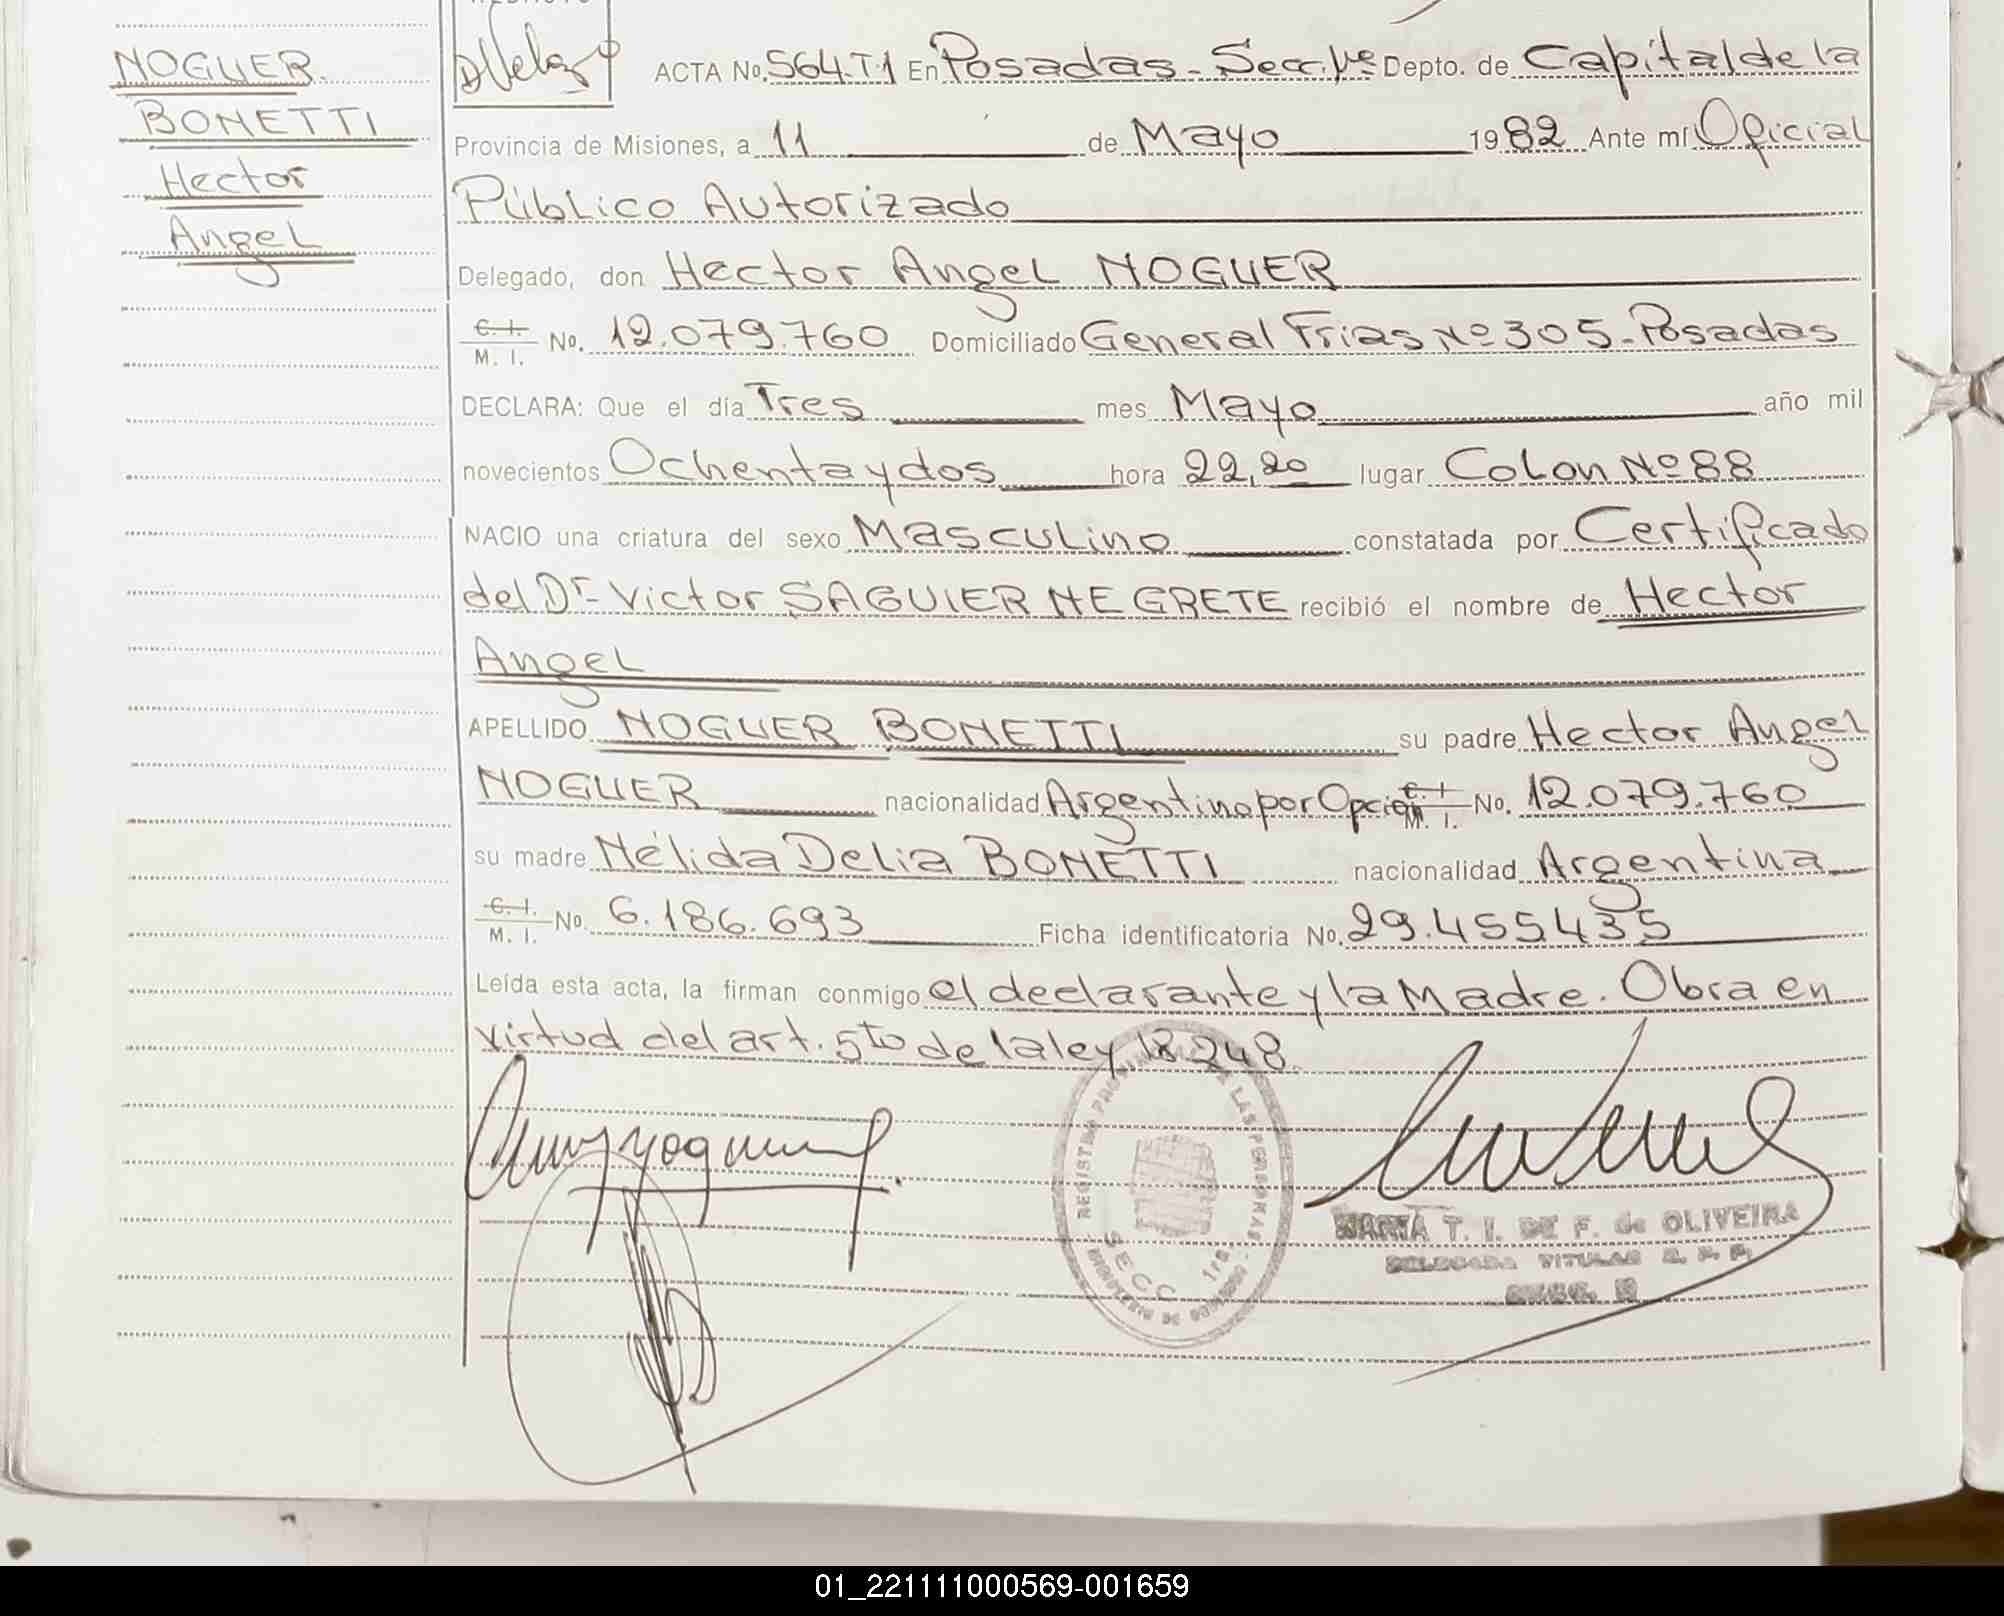 NOGUER
BONETTI
Hector
Angel
ACTA No. 564.T.1 En Posadas - Secc. 1ª Depto. de Capital de la
Provincia de Misiones, a 11 de Mayo 1982 Ante mí Oficial
Público Autorizado
Delegado, don Hector Angel NOGUER
C. I.
M. I. No. 12.079.760 Domiciliado General Frias Nº 305 - Posadas
DECLARA: Que el día Tres mes Mayo año mil
novecientos Ochenta y dos hora 22,20 lugar Colon Nº 88
NACIO una criatura del sexo Masculino constatada por Certificado
del Dr Victor SAGUIER NEGRETE recibió el nombre de Hector
Angel
APELLIDO NOGUER BONETTI su padre Hector Angel
NOGUER nacionalidad Argentino por Opción C. I. M. I. No. 12.079.760
su madre Nélida Delia BONETTI nacionalidad Argentina
C. I.
M. I. No. 6.186.693 Ficha identificatoria No. 29.455435
Leída esta acta, la firman conmigo el declarante y la Madre. Obra en
virtud del art. 5to de la ley 18248.
REGISTRO PROV. DE LAS PERSONAS
SECC. 1ra
MARIA T. I. DE F. de OLIVEIRA
DELEGADA TITULAR R. P. P.
01_221111000569-001659